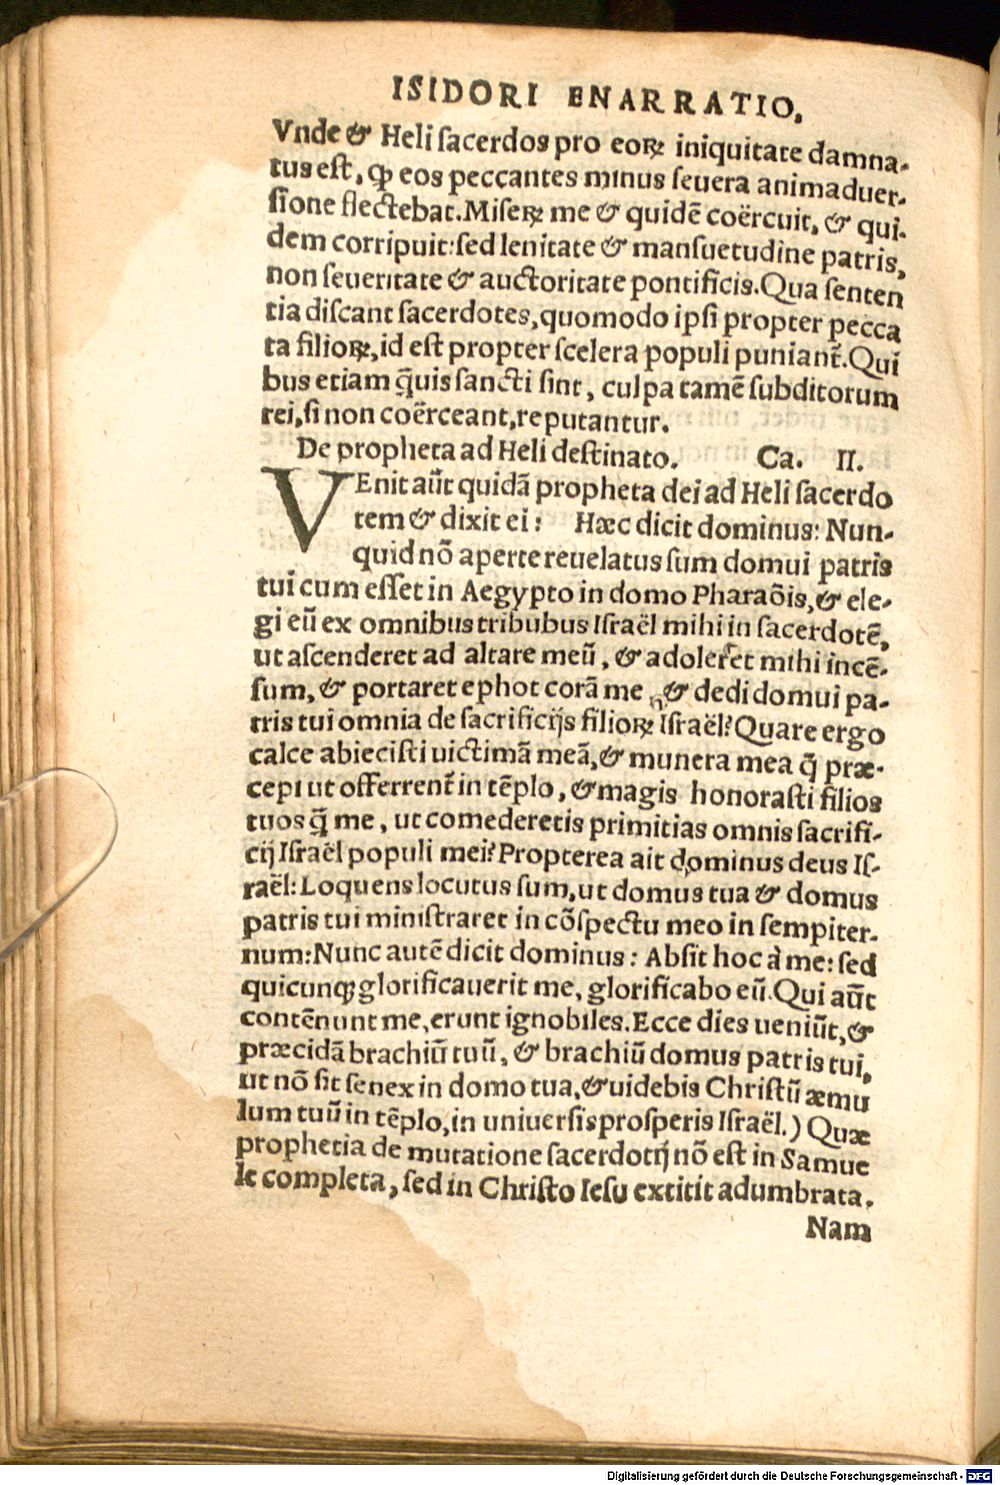 ISIDORI ENARRATIO.
Vnde & Heli ſacerdos pro eoꝝ iniquitate damna-
tus eſt, ꝙ eos peccantes minus ſeuera animaduer-
ſione flectebat. Miſeꝝ me & quidē coërcuit, & qui-
dem corripuit: ſed lenitate & manſuetudine patris,
non ſeueritate & auctoritate pontificis. Qua ſenten
tia diſcant ſacerdotes, quomodo ipſi propter pecca
ta filioꝝ, id eſt propter ſcelera populi puniant̃. Qui
bus etiam q̄uis ſancti ſint, culpa tamē ſubditorum
rei, ſi non coërceant, reputantur.
De propheta ad Heli deſtinato. Ca. II.
VEnit aūt quidā propheta dei ad Heli ſacerdo
tem & dixit ei: Hæc dicit dominus: Nun-
quid nō aperte reuelatus ſum domui patris
tui cum eſſet in Aegypto in domo Pharaōis, & ele-
gi eū ex omnibus tribubus Iſraël mihi in ſacerdotē,
ut aſcenderet ad altare meū, & adoleret mihi incē-
ſum, & portaret ephot corā me, & dedi domui pa-
tris tui omnia de ſacrificijs filioꝝ Iſraël? Quare ergo
calce abieciſti uictimā meā, & munera mea q̄ præ-
cepi ut offerrent̃ in tēplo, & magis honoraſti filios
tuos q̄ me, ut comederetis primitias omnis ſacrifi-
cij Iſraël populi mei? Propterea ait dominus deus Iſ-
raël: Loquens locutus ſum, ut domus tua & domus
patris tui miniſtraret in cōſpectu meo in ſempiter-
num: Nunc autē dicit dominus: Abſit hoc à me: ſed
quicunqꝫ glorificauerit me, glorificabo eū. Qui aūt
contēnunt me, erunt ignobiles. Ecce dies ueniūt, &
præcidā brachiū tuū, & brachiū domus patris tui,
ut nō ſit ſenex in domo tua, & uidebis Chriſtū æmu
lum tuū in tēplo, in uniuerſis proſperis Iſraël.) Quæ
prophetia de mutatione ſacerdotij nō eſt in Samue
le completa, ſed in Chriſto Ieſu extitit adumbrata.
Nam
Digitalisierung gefördert durch die Deutsche Forschungsgemeinschaft - DFG